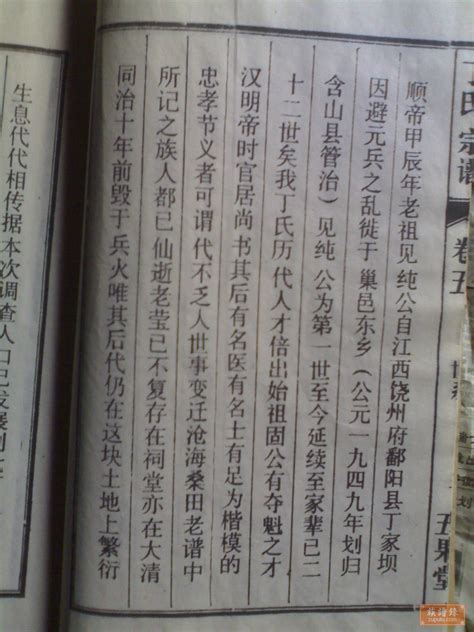 丁氏宗谱
卷五
世系
五果堂
顺帝甲辰年老祖见纯公自江西饶州府鄱阳县丁家坝
因避元兵之乱徙于巢邑东乡（公元一九四九年划归
含山县管治）见纯公为第一世至今延续至家辈已二
十二世矣我丁氏历代人才倍出始祖固公有夺魁之才
汉明帝时官居尚书其后有名医有名士有足为楷模的
忠孝节义者可谓代不乏人世事变迁沧海桑田老谱中
所记之族人都已仙逝老茔已不复存在祠堂亦在大清
同治十年前毁于兵火唯其后代仍在这块土地上繁衍
生息代代相传据本次调查人口已发展到二
族谱录
zupulu.com